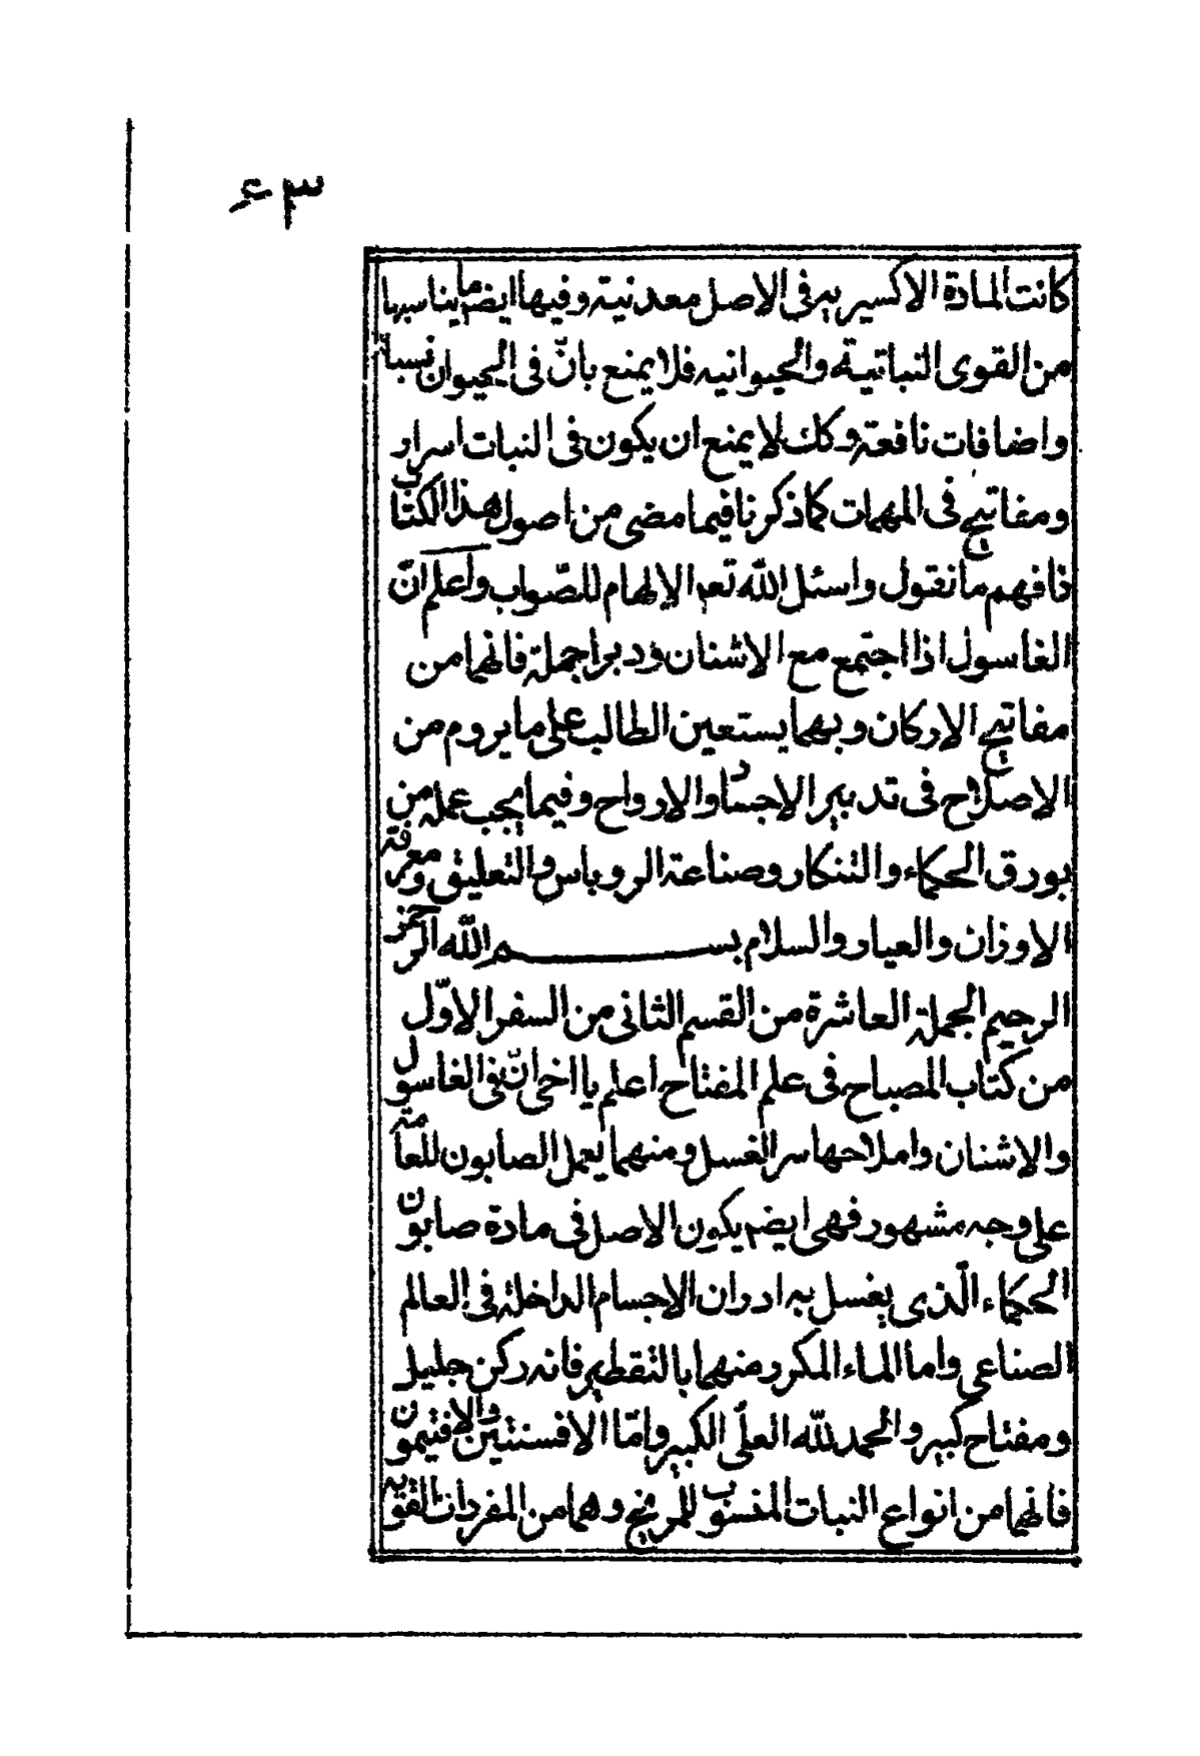 ٣٤
كانت المادة الاكسيريه فى الاصل معدنية وفيها ايضم ما يناسبها
من القوى النباتية والحيوانيه فلا يمنع بانّ فى الحيوان نسباً
واضافات نافعة وكك لا يمنع ان يكون فى النبات اسرار
ومفاتيح فى المهمات كما ذكرنا فيما مضى من اصول هذا الكتاب
فافهم ما نقول واسئل الله تعم الالهام للصّواب واعلم انّ
الغاسول اذا اجتمع مع الاشنان ودبرا جملة فانهما من
مفاتيح الاركان وبهما يستعين الطالب على ما يروم من
الاصلاح فى تدبير الاجساد والارواح وفيما يجب عمله من
بورق الحكماء والتنكار وصناعة الروباس والتعليق ومعرفة
الاوزان والعيار والسلام بسم الله الرحمن
الرحيم الجملة العاشرة من القسم الثانى من السفر الاوّل
من كتاب المصباح فى علم المفتاح اعلم يا اخى انّ فى الغاسول
والاشنان واملاحها سر الغسل ومنهما يعمل الصابون للعامة
على وجه مشهور فهى ايضم يكون الاصل فى مادة صابون
الحكماء الّذى يغسل به ادران الاجسام الداخلة فى العالم
الصناعى واما الماء المكرر منهما بالتقطير فانه ركن جليل
ومفتاح كبير والحمد لله العلى الكبير وامّا الافسنتين والافتيمون
فانهما من انواع النبات المنسوب للمريخ وهما من المفردات القويه